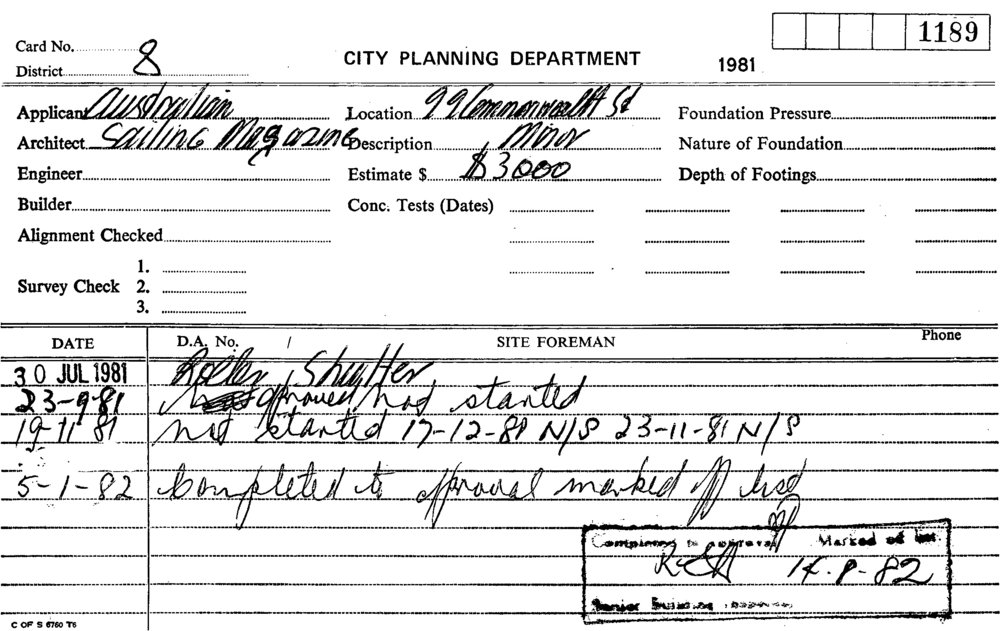 1189
Card No.
District 8
CITY PLANNING DEPARTMENT 1981
Applicant Australian Location 99 Commonwealth St Foundation Pressure
Architect Sailing Magazine Description Minor Nature of Foundation
Engineer Estimate $ $3000 Depth of Footings
Builder Conc. Tests (Dates)
Alignment Checked
1.
Survey Check 2.
3.
DATE D.A. No. / SITE FOREMAN Phone
30 JUL 1981 Roller Shutter
23-9-81 approved had started
19-11-81 not started 17-12-81 N/S 23-11-81 N/S
5-1-82 Completed to approval marked off
Completed to approval Marked off list
82
Senior Building
C OF S 6760 T6